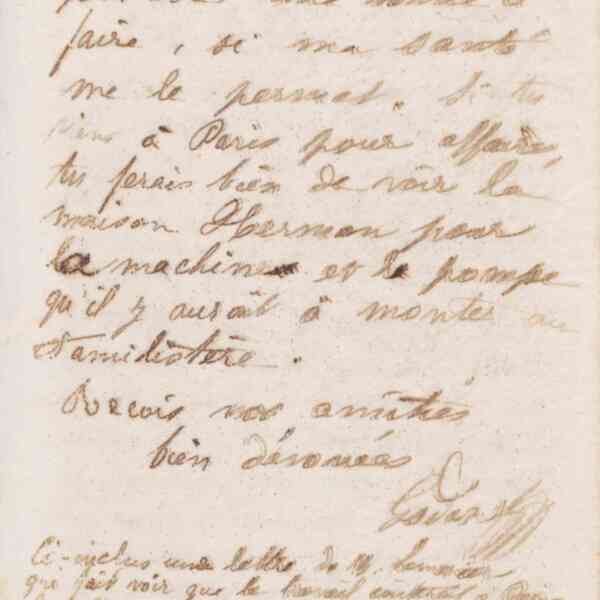 faire, si ma santé
me le permet. Si tu
viens à Paris pour affaire,
tu ferais bien de voir la
maison Herman pour
la machine et la pompe
qu'il y aurait à monter au
Familistère.
Reçois nos amitiés
bien dévouées
Godin
Ci-inclus une lettre de M.
que fait voir que le travail à